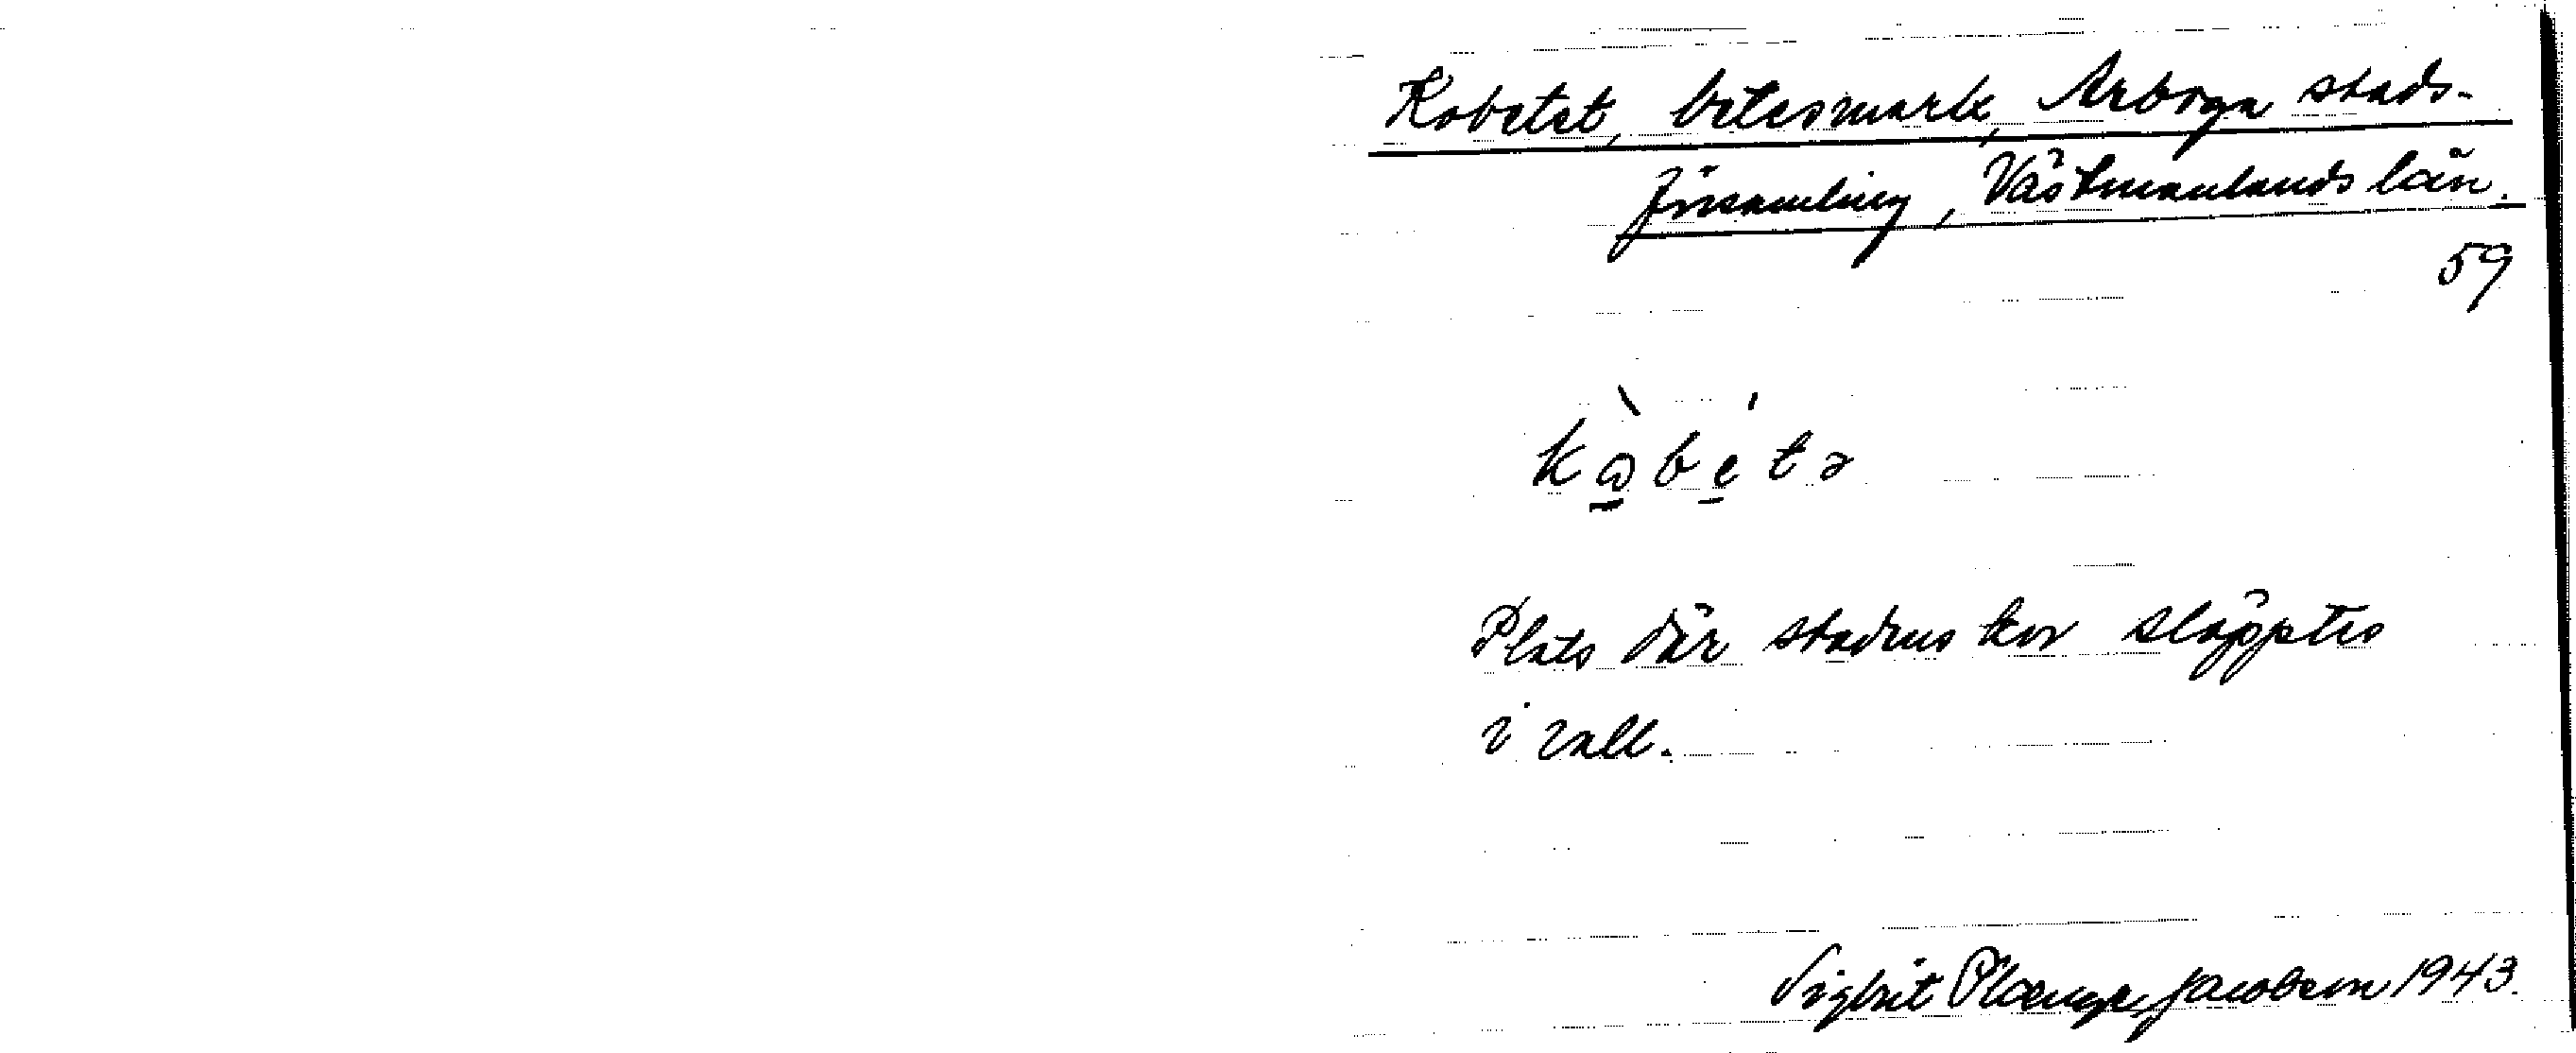 Kobetet, betesmark, Arboga stads-
församling, Västmanlands län.
59
kὼbe̱´tə
Plats där stadens kor släpptes
i vall.
Sigbrit Plænge Jacobson 1943.